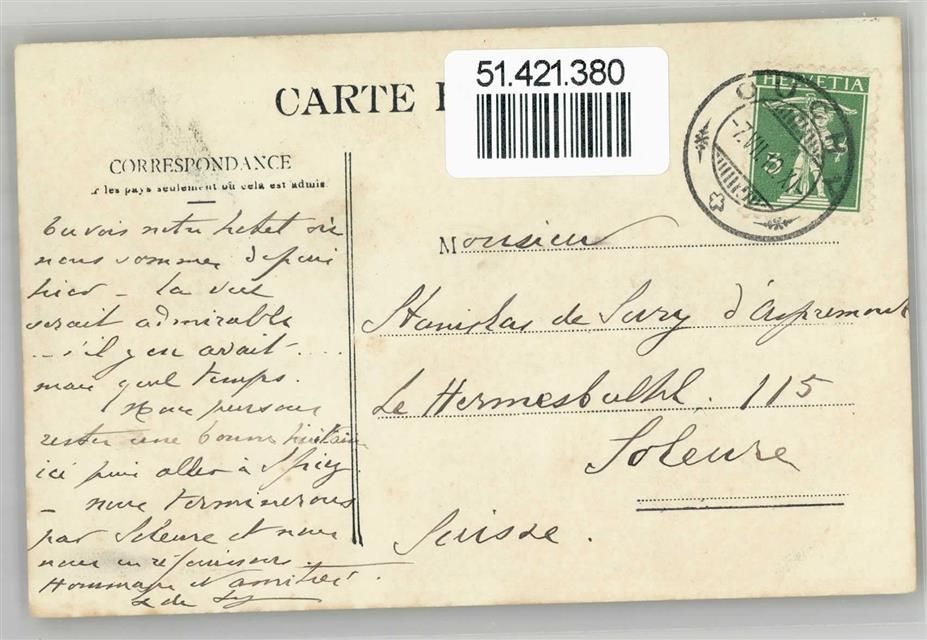 51.421.380
CARTE
HELVETIA
OUCHY
-7.VII.10.
CORRESPONDANCE
r les pays seulement où cela est admis
Monsieur
Stanislas de Sury d'Aspremont
Le Hermesbulhl. 115
Soleure
Suisse.
Tu vois notre hotel où
nous sommes depuis
hier - la vue
serait admirable
- s'il y en avait ....
mais quel temps.
Nous pensons
rester une bonne huitaine
ici puis aller à Spiez
- nous terminerons
par Soleure et nous
nous en réjouissons.
Hommages et amitiés.
de